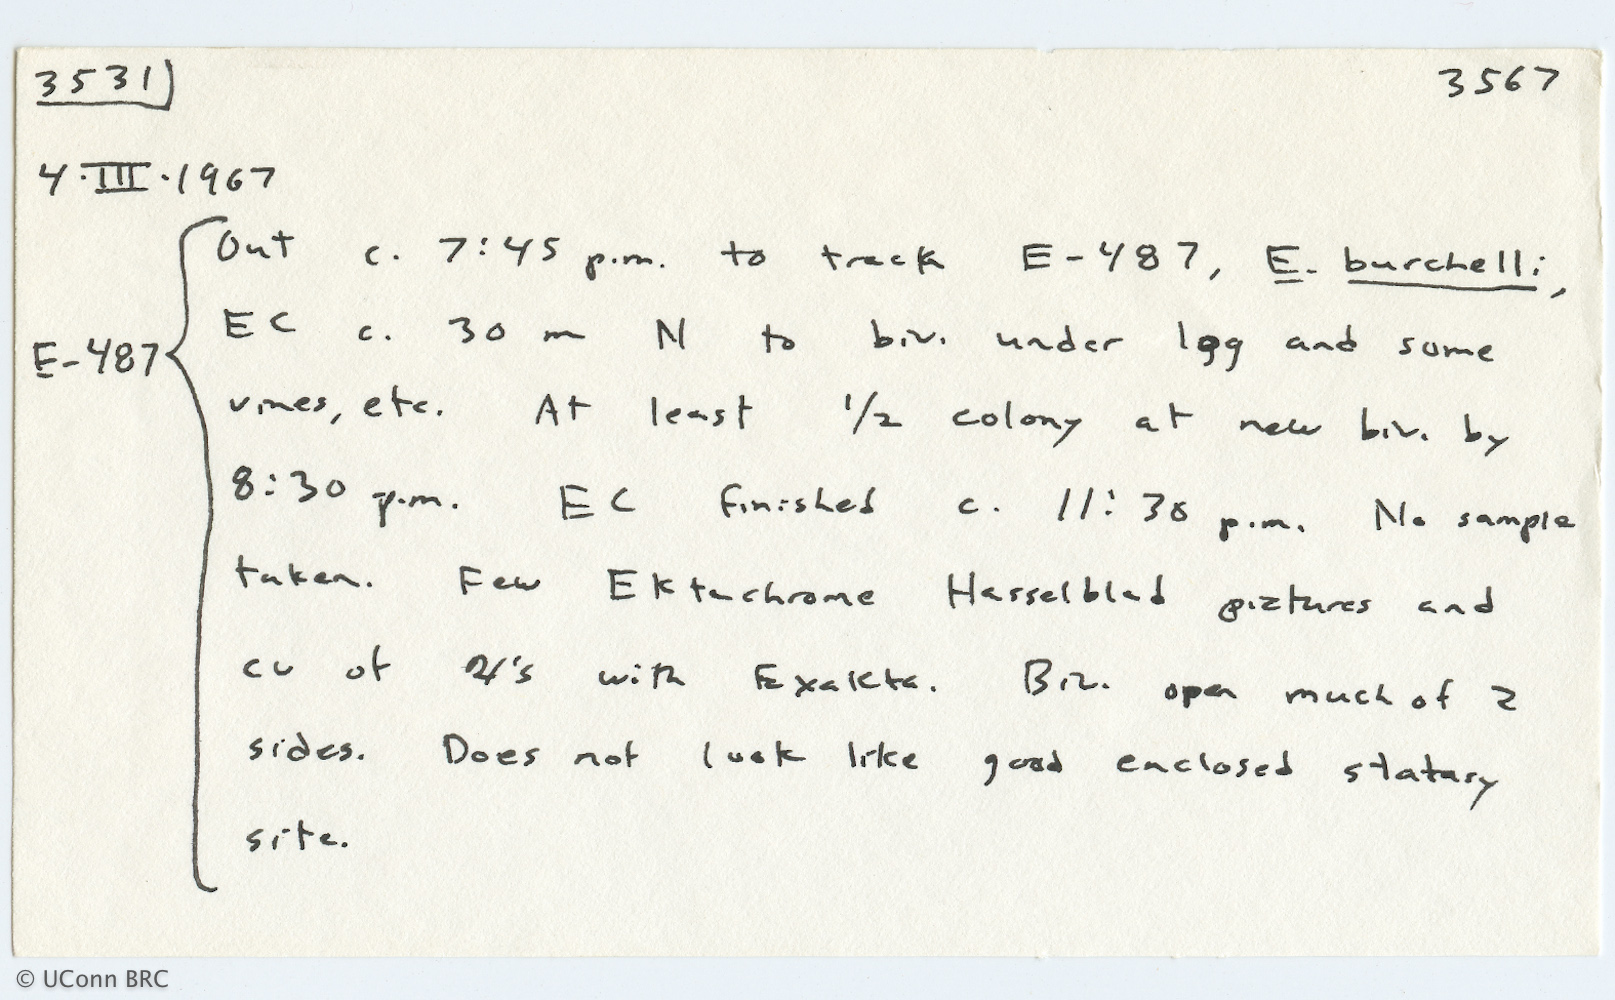 3531 3567
4·III·1967
Out c. 7:45 p.m. to track E-487, E. burchelli,
E-487 EC c. 30 m N to biv. under log and some
vines, etc. At least 1/2 colony at new biv. by
8:30 p.m. EC finished c. 11:30 p.m. No sample
taken. Few Ektachrome Hasselblad pictures and
cu of 's with Exakta. Biv. open much of 2
sides. Does not look like good enclosed statary
site.
© UConn BRC